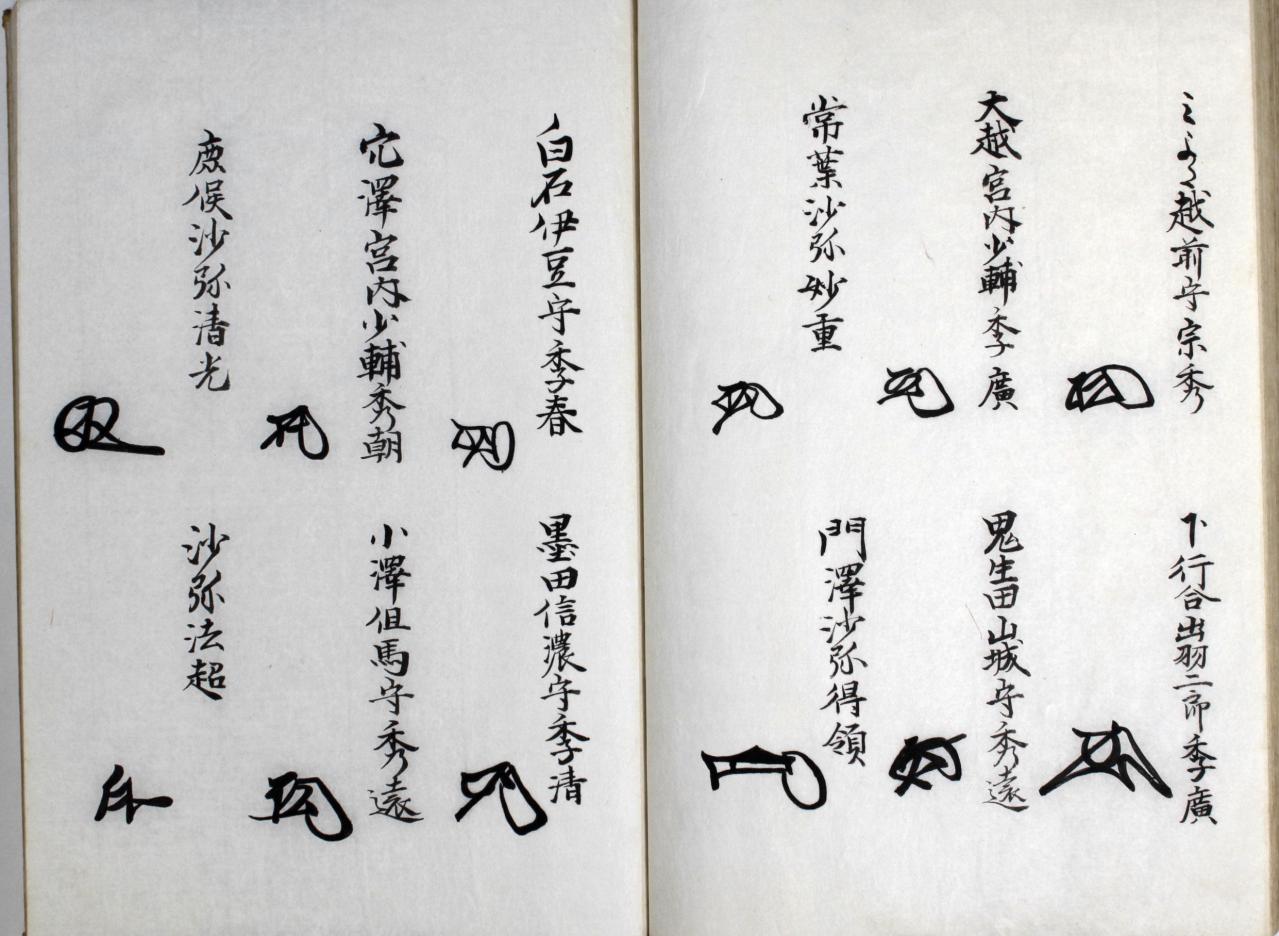 ミよ〱越前守宗秀
下行合出羽二郎季廣
大越宮内少輔季廣
鬼生田山城守秀遠
常葉沙弥妙重
門澤沙弥得領
白石伊豆守季春
墨田信濃守季清
穴澤宮内少輔秀朝
小澤但馬守秀遠
鹿俣沙弥清光
沙弥法超